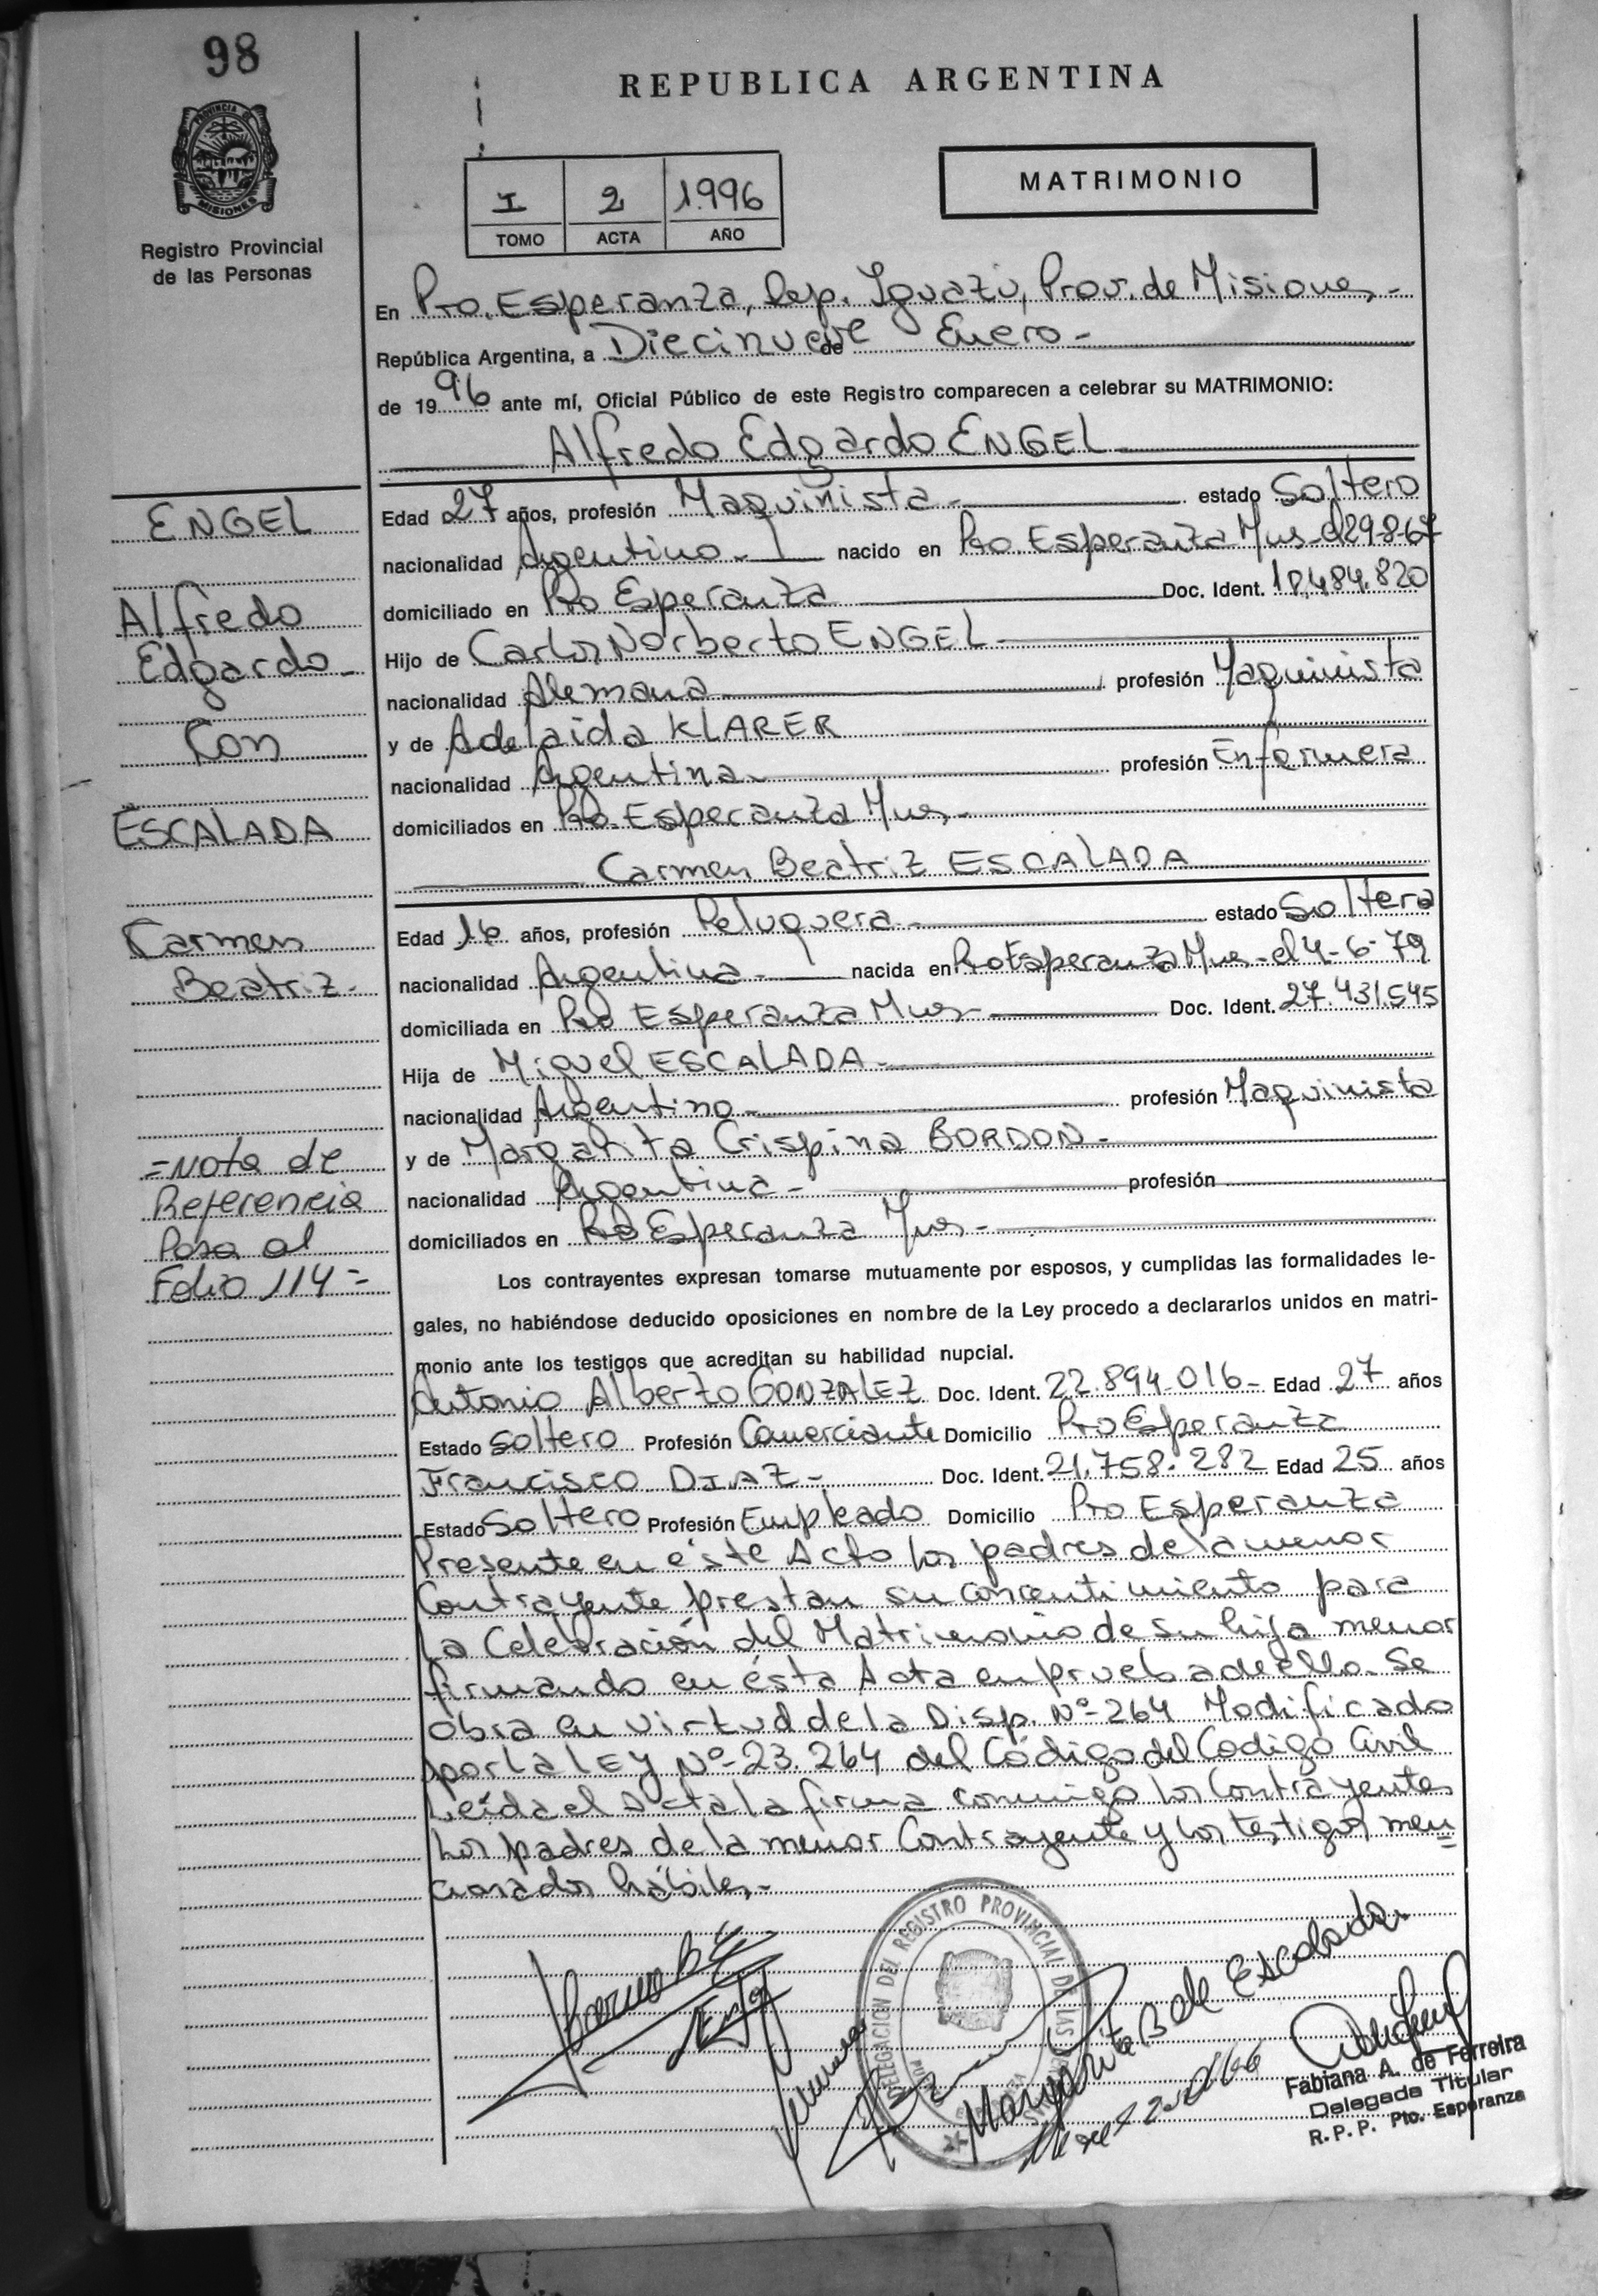 98
REPUBLICA ARGENTINA
PROVINCIA DE
MISIONES
Registro Provincial
de las Personas
I 2 1.996
TOMO ACTA AÑO
MATRIMONIO
En Pto. Esperanza, Dep. Iguazú, Prov. de Misiones.-
República Argentina, a Diecinueve de Enero.-
de 1996 ante mí, Oficial Público de este Registro comparecen a celebrar su MATRIMONIO:
Alfredo Edgardo ENGEL
Edad 27 años, profesión Maquinista.- estado Soltero
nacionalidad Argentino.- nacido en Pto. Esperanza Mnes- el 29-8-67
domiciliado en Pto Esperanza Doc. Ident. 18.484.820
Hijo de Carlos Norberto ENGEL-
nacionalidad Alemana profesión Maquinista
y de Adelaida KLARER
nacionalidad Argentina. profesión Enfermera
domiciliados en Pto. Esperanza Mnes.-
Carmen Beatriz ESCALADA
Edad 16 años, profesión Peluquera.- estado Soltera
nacionalidad Argentina.- nacida en Pto Esperanza Mnes-el 4-6-79
domiciliada en Pto Esperanza Mnes- Doc. Ident. 27.431.545
Hija de Miguel ESCALADA-
nacionalidad Argentino- profesión Maquinista
y de Margarita Crispina BORDON-
nacionalidad Argentina- profesión
domiciliados en Pto Esperanza Mnes-
Los contrayentes expresan tomarse mutuamente por esposos, y cumplidas las formalidades le-
gales, no habiéndose deducido oposiciones en nombre de la Ley procedo a declararlos unidos en matri-
monio ante los testigos que acreditan su habilidad nupcial.
Antonio Alberto GONZALEZ Doc. Ident. 22.894.016- Edad 27 años
Estado Soltero Profesión Comerciante Domicilio Pto Esperanza
Francisco DIAZ- Doc. Ident. 21.758.282 Edad 25 años
Estado Soltero Profesión Empleado Domicilio Pto Esperanza
Presente en éste Acto los padres de la menor
Contrayente prestan su concentimiento para
La Celebración del Matrimonio de su hija menor
firmando en ésta Acta en prueba de ello. Se
obra en virtud de la Disp. Nº-264 Modificado
por la LEY Nº-23.264 del Código del Codigo Civil
Leída el Acta la firma conmigo los Contrayentes
Los padres de la menor Contrayente y los testigos men=
cionados hábiles.-
ENGEL
Alfredo
Edgardo-
Con
ESCALADA
Carmen
Beatriz-
=Nota de
Referencia
Pasa al
Folio 114=
DELEGACION DEL REGISTRO PROVINCIAL DE LAS
Margarita B de Escalada
Fabiana A. de Ferreira
Delegada Titular
R. P. P. Pto. Esperanza